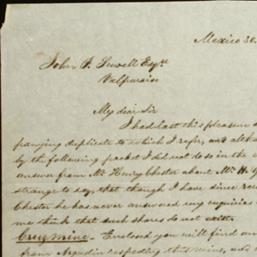 Mexico 30
John F. Sewell Esqre
Valparaiso
My dear Sir
I had last this pleasure
panying duplicate to which I refer, and altho
by the following packet I did not do so in the
answer from Mr Henry Chester about Mr H.
strange to say, that though I have since rec
Chester he has never answered my inquiries
me think that such shares do not exist.
Crecy mine. Enclosed you will find an
from Agudin respecting this mine, and